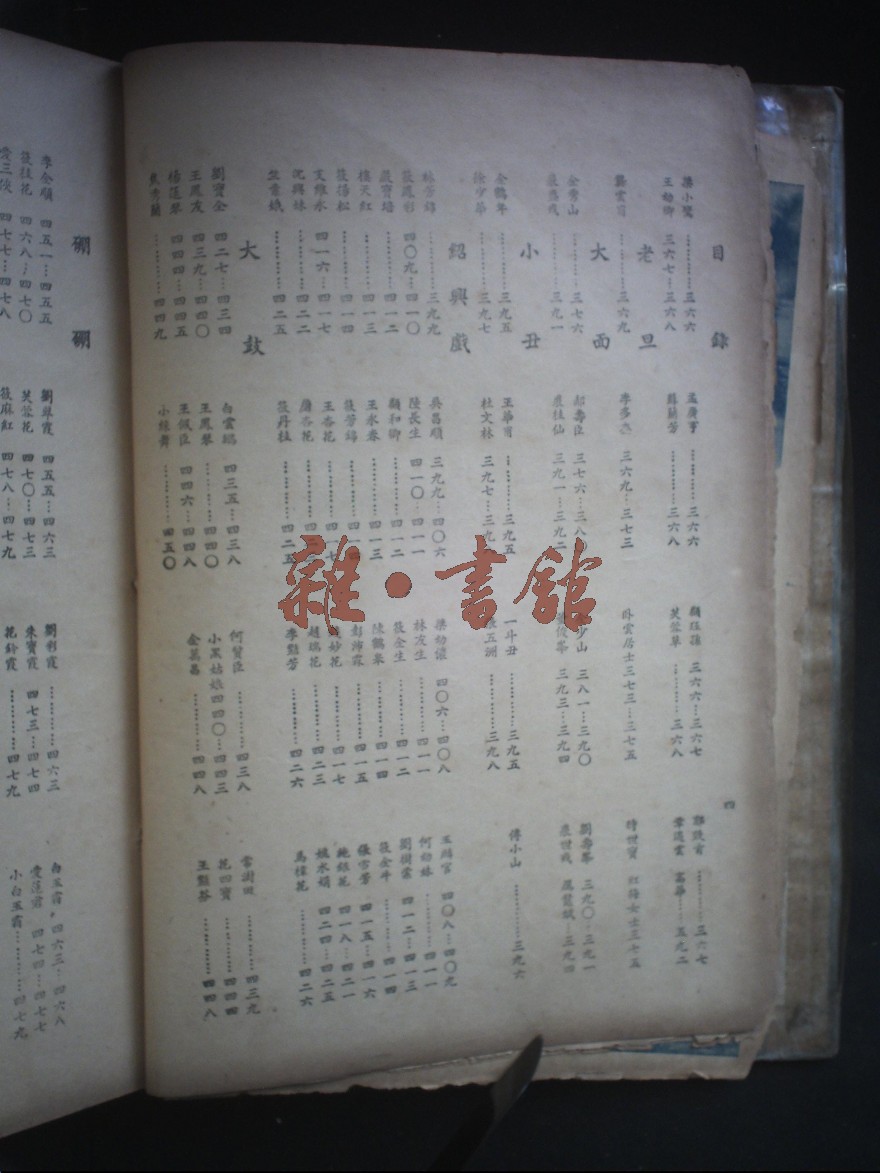 目錄
四
梁小鸞…………三六六
孟廣亨…………三六六
顏珏蓀 三六六…三六七
王幼卿 三六七…三六八
蘇蘭芳…………三六八
芙蓉草…………三六八
老旦
龔雲甫…………三六九
李多奎 三六九…三七三
臥雲居士三七三…三七五
時世寶
大面
金秀山…………三七六
郝壽臣 三七六…三八
少山 三八一…三九〇
劉壽峯 三九〇…三九一
裘盛戎…………三九一
裘桂仙 三九一…三九二
三九三…三九四
裘世戎
小丑
金鶴年…………三九五
王華甫…………三九五
一斗丑…………三九五
傅小山…………三九六
徐少華…………三九七
杜文林 三九七…三九
五洲…………三九八
紹興戲
林芳錦…………三九九
吳昌順 三九九…四〇六
梁幼儂 四〇六…四〇八
四〇八…四〇九
筱鳳彩 四〇九…四一〇
陸長生 四一〇…四一一
林友生…………四一一
何幼妹…………四一一
嚴寶培…………四一二
顏和卿…………四一二
筱金生…………四一二
劉樹棠 四一二…四一三
樓天紅…………四一三
王永春…………四一三
陳鶴皋…………四一四
筱金牛…………四一四
筱楊松…………四一四
筱芳錦
彭沛霖…………四一五
張雪芳 四一五…四一六
支維永 四一六…四一七
王杏花
妙花…………四一七
施銀花 四一八…四二一
沈興妹…………四二二
屠杏花
趙瑞花…………四二三
姚水娟 四二四…四二五
竺素娥…………四二五
筱丹桂…………四二五
李艷芳…………四二六
馬樟花…………四二六
大鼓
劉寶全 四二七…四三四
白雲鵬 四三五…四三八
何質臣…………四三八
常澍田…………四三九
王鳳友 四三九…四四〇
王鳳琴…………四四〇
小黑姑娘四四〇…四四三
花四寶…………四四四
楊蓮琴 四四四…四四五
王佩臣 四四六…四四八
金萬昌…………四四八
王艷芬…………四四八
焦秀蘭…………四四九
小綵舞…………四五〇
硼硼
李金順 四五一…四五五
劉翠霞 四五五…四六三
劉彩霞…………四六三
白玉霜 四六三…四六八
筱桂花 四六八…四七〇
芙蓉花 四七〇…四七三
朱寶霞 四七三…四七四
愛蓮君 四七四…四七七
四七七…四七八
筱麻紅 四七八…四七九
花鈴霞…………四七九
小白玉霜…………四七九
雜·書館